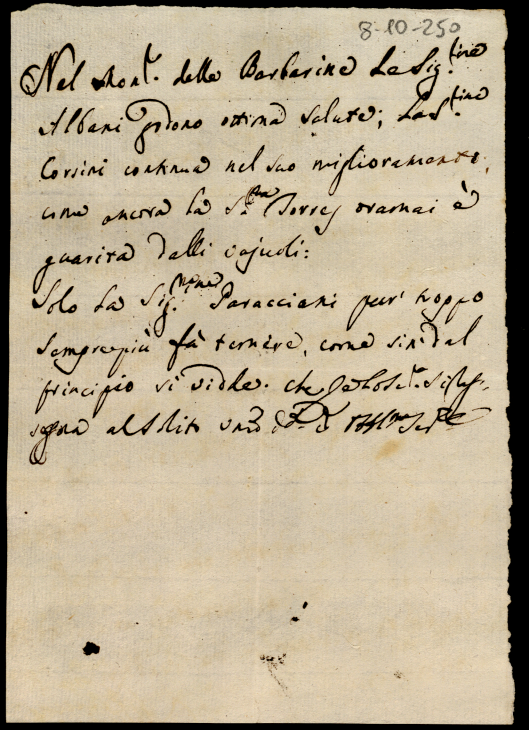 8-10-250
Nel Mon.t delle Barbarine Le Sig.tine
Albani godono ottima salute; La S.tina
Corsini continua nel suo miglioramento,
come ancora la S.ra Torres oramai è
guarita dalli vajuoli:
Solo La Sig. Paracciani pur troppo
sempre più fà temere, come sin dal
principio si vidde. che
al solito